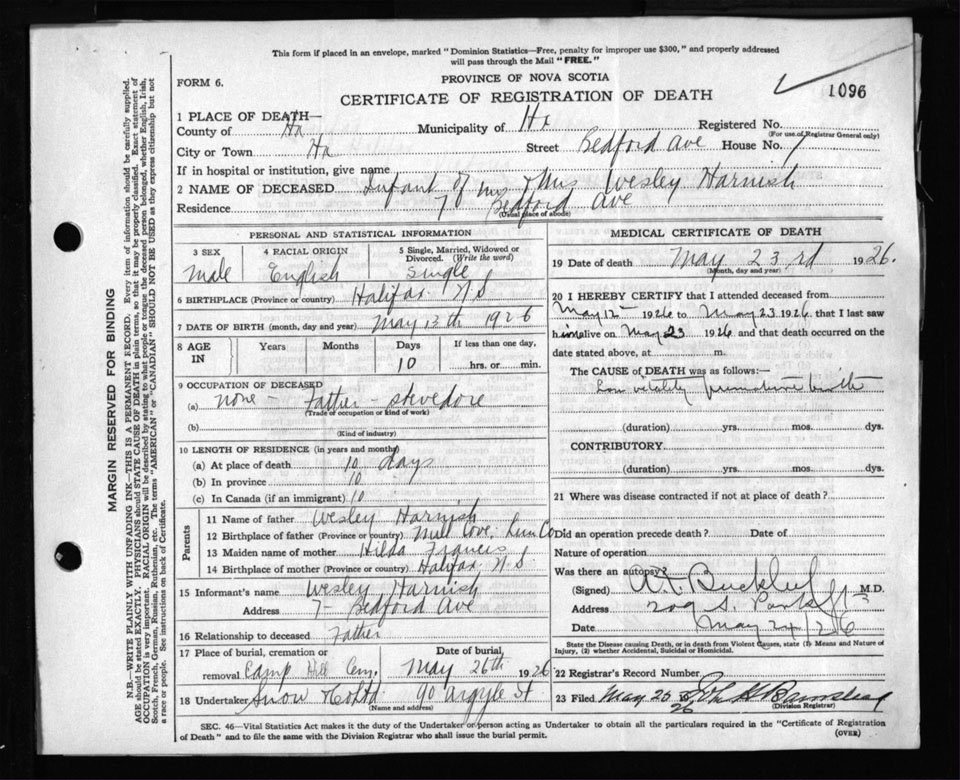 This form if placed in an envelope, marked "Dominion Statistics—Free, penalty for improper use $300," and properly addressed
will pass through the Mail "FREE."
FORM 6.
PROVINCE OF NOVA SCOTIA
CERTIFICATE OF REGISTRATION OF DEATH
1096
1 PLACE OF DEATH—
County of Hx Municipality of Hx Registered No.
(For use of Registrar General only)
City or Town Hx Street Bedford Ave House No. 7
If in hospital or institution, give name
2 NAME OF DECEASED Infant of Mr & Mrs Wesley Harnish
Residence 7 Bedford Ave
(Usual place of abode)
PERSONAL AND STATISTICAL INFORMATION
3 SEX 4 RACIAL ORIGIN 5 Single, Married, Widowed or Divorced. (Write the word)
Male English Single
6 BIRTHPLACE (Province or country) Halifax N S
7 DATE OF BIRTH (month, day and year) May 13th 1926
8 AGE IN Years Months Days If less than one day,
10 hrs. or min.
9 OCCUPATION OF DECEASED
(a) none - Father - stevedore
(Trade of occupation or kind of work)
(b)
(Kind of industry)
10 LENGTH OF RESIDENCE (in years and months)
(a) At place of death 10 days
(b) In province 10
(c) In Canada (if an immigrant) 10
Parents
11 Name of father Wesley Harnish
12 Birthplace of father (Province or country) Mill Cove, Lun Co
13 Maiden name of mother Hilda Francis
14 Birthplace of mother (Province or country) Halifax, N S
15 Informant's name Wesley Harnish
Address 7 - Bedford Ave
16 Relationship to deceased Father
17 Place of burial, cremation or removal Date of burial,
Camp Hill Cem. May 26th 1926
18 Undertaker Snow & Co Ltd 90 Argyle St
(Name and address)
MEDICAL CERTIFICATE OF DEATH
19 Date of death May 23rd 1926.
(Month, day and year)
20 I HEREBY CERTIFY that I attended deceased from
May 12 1926 to May 23 1926, that I last saw
him alive on May 23 1926 and that death occurred on the
date stated above, at m.
The CAUSE of DEATH was as follows:—
Low vitality premature birth
(duration) yrs. mos. dys.
CONTRIBUTORY
(duration) yrs. mos. dys.
21 Where was disease contracted if not at place of death?
Did an operation precede death? Date of
Nature of operation
Was there an autopsy?
(Signed) Buckley M.D.
Address 209 S. Park St
Date May 24/26
State the Disease causing Death, or in death from Violent Causes, state (1) Means and Nature of
Injury, (2) whether Accidental, Suicidal or Homicidal.
22 Registrar's Record Number
23 Filed May 25 26 John H Barnstead
(Division Registrar)
SEC. 46—Vital Statistics Act makes it the duty of the Undertaker or person acting as Undertaker to obtain all the particulars required in the "Certificate of Registration
of Death" and to file the same with the Division Registrar who shall issue the burial permit.
(OVER)
MARGIN RESERVED FOR BINDING
N.B.—WRITE PLAINLY WITH UNFADING INK—THIS IS A PERMANENT RECORD. Every item of information should be carefully supplied.
AGE should be stated EXACTLY. PHYSICIANS should STATE CAUSE OF DEATH in plain terms, so that it may be properly classified. Exact statement of
OCCUPATION is very important. RACIAL ORIGIN will be described by stating to what people or tongue the deceased person belonged, whether English, Irish,
Scotch, French, German, Russian, Ruthenian, etc. The terms "AMERICAN" or "CANADIAN" SHOULD NOT BE USED as they express citizenship but not
a race or people. See instructions on back of Certificate.